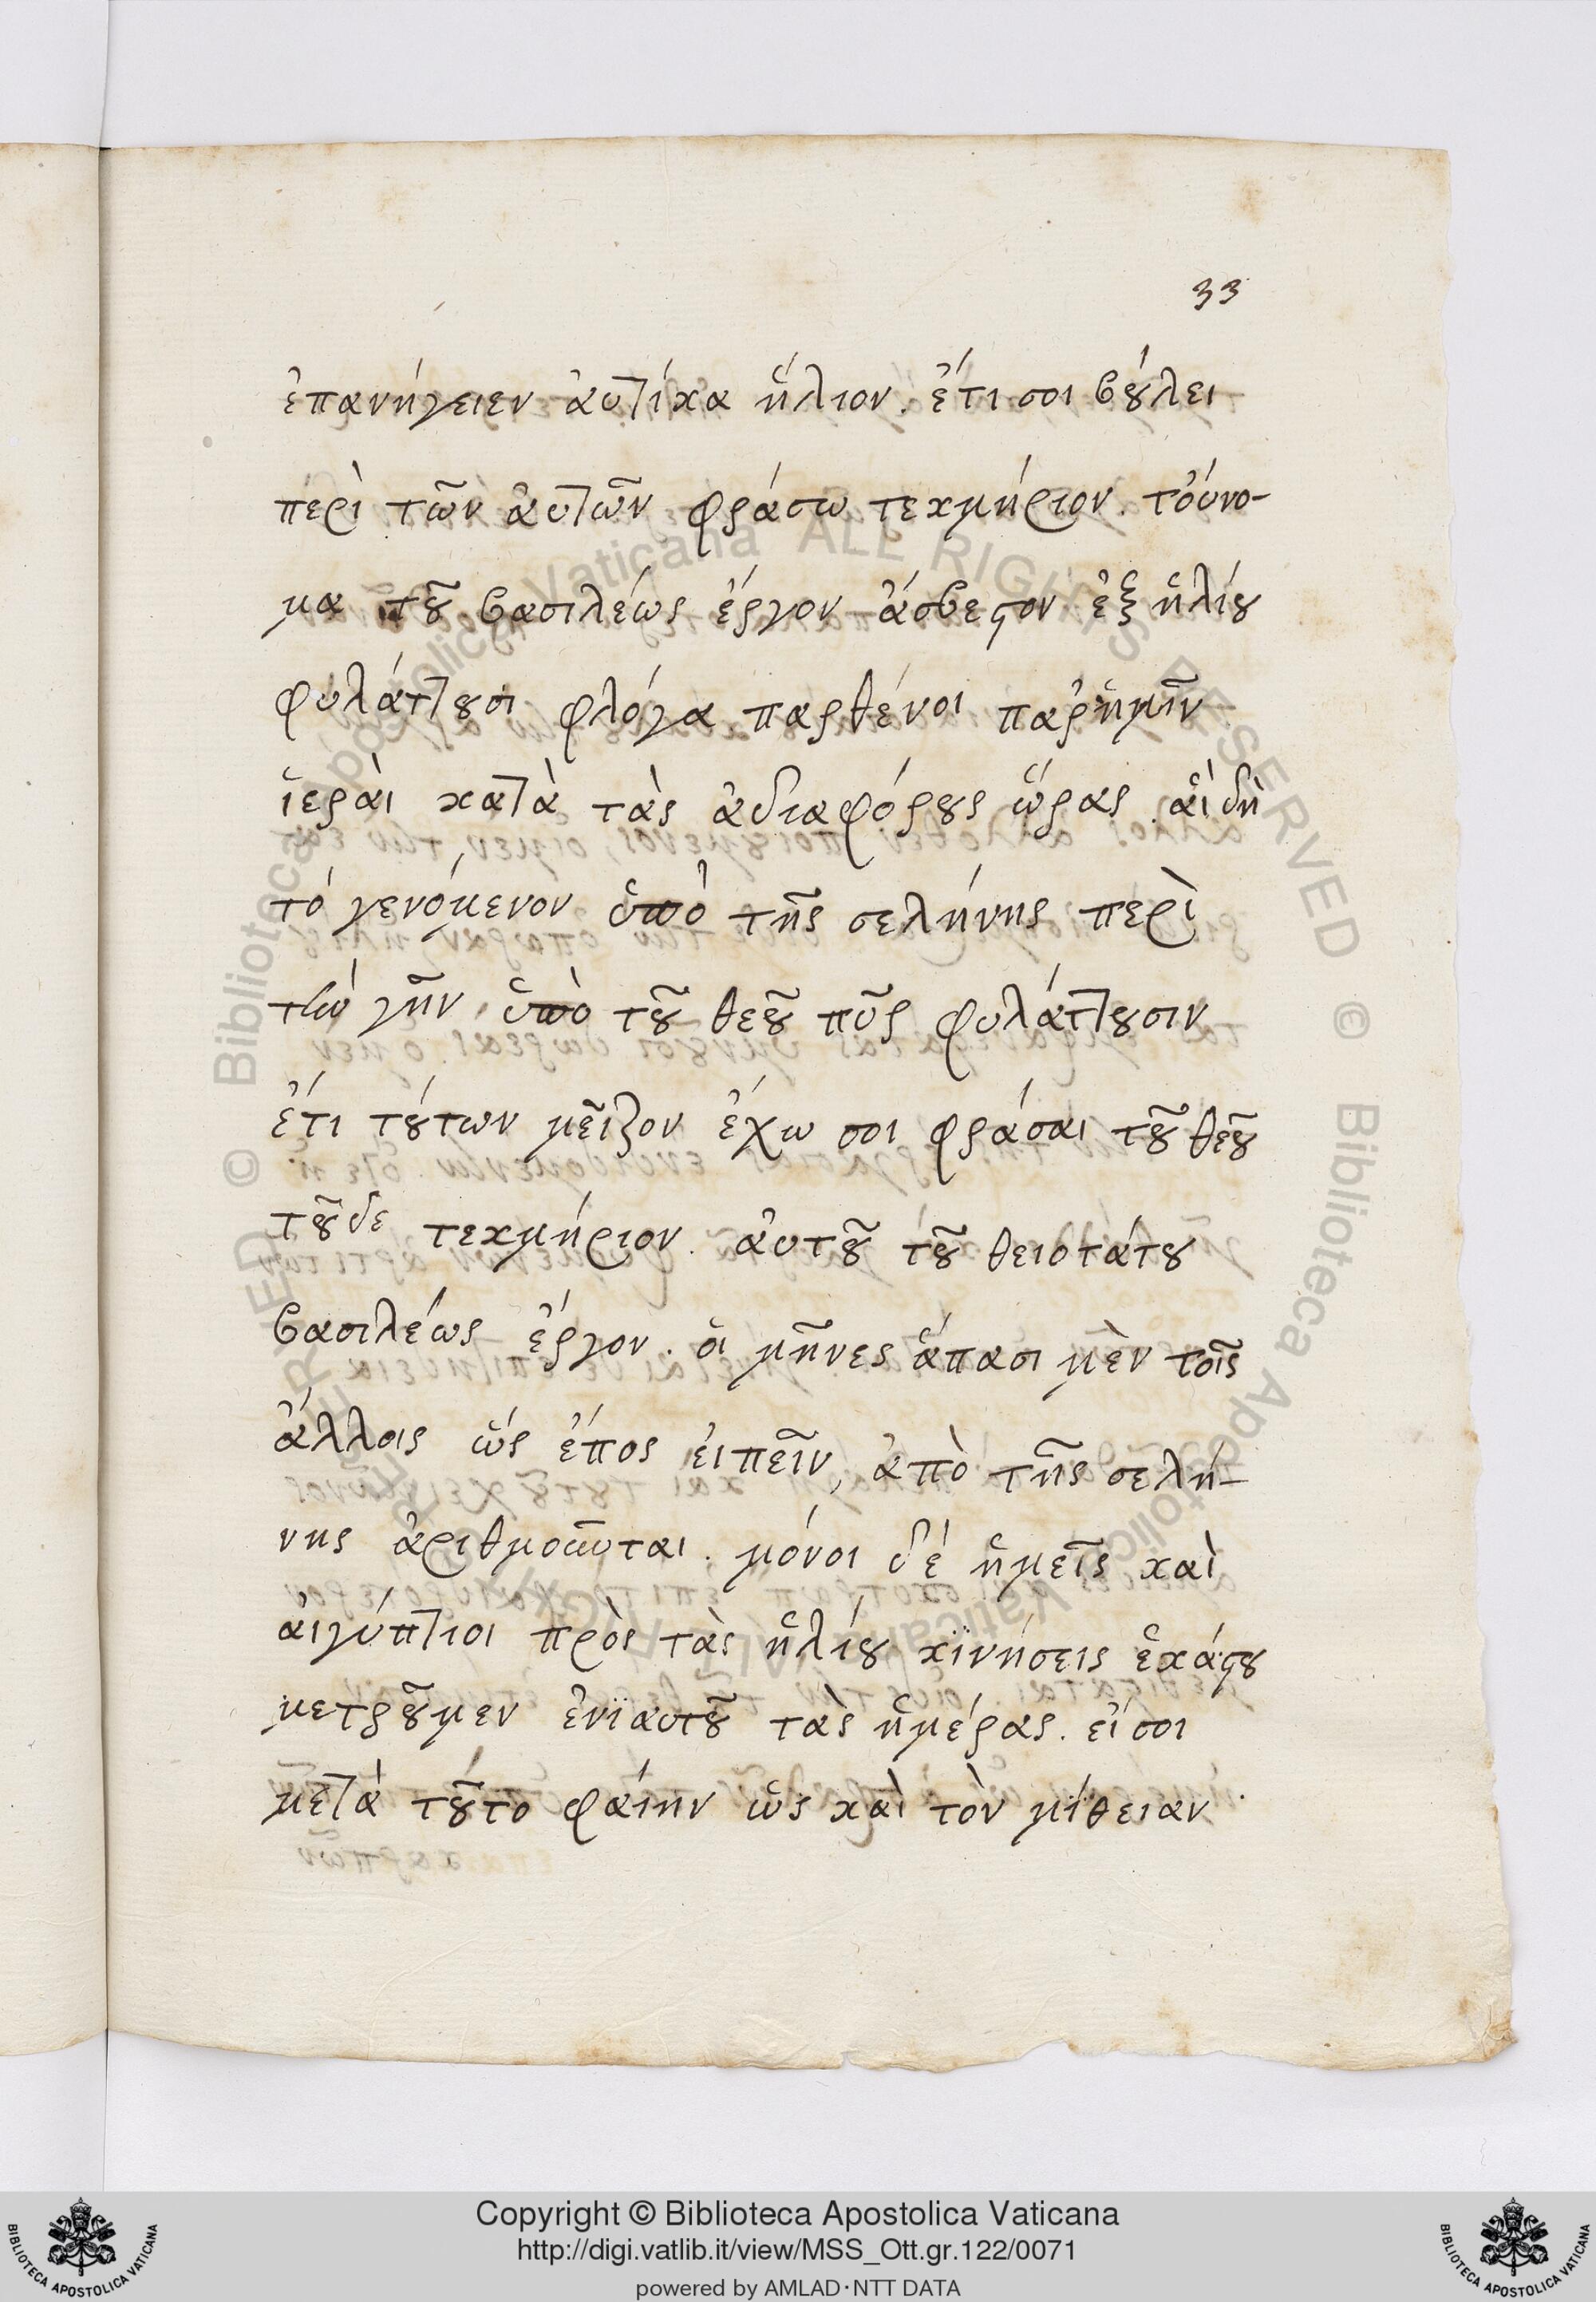 33
ἐπανήγειεν ἀυτίκα ἥλιον. ἔτι σοι βούλει
περὶ τῶν ἀυτῶν φράσω τεκμήριον. τὀύνο-
μα τοῦ βασιλέως ἔργον ἄσβεστον ἐξ ἡλίου
φυλάττουσι φλόγα παρθένοι παρ᾽ ἡμῖν
ἱερὰι κατὰ τὰς ἀδιαφόρους ὥρας. ἃι δὴ
τό γενόμενον ὑπό τῆς σελήνης περὶ
τὴν γῆν ὑπὸ τοῦ θεοῦ πῦρ φυλάττουσιν
ἔτι τούτων μεῖζον ἔχω σοι φράσαι τοῦ θεοῦ
τοῦδε τεκμήριον. ἀυτοῦ τοῦ θειοτάτου
βασιλέως ἔργον. ὁι μῆνες ἅπασι μὲν τοῖς
ἄλλοις ὥς ἔπος ἐιπεῖν, ἀπὸ τῆς σελή-
νης ἀριθμοῦνται. μόνοι δέ ἡμεῖς καὶ
ἀιγύπτιοι πρὸς τὰς ἡλίου κϊνήσεις ἑκάστου
μετροῦμεν ἐνϊαυτοῦ τὰς ἡμέρας. εἴ σοι
μετά τοῦτο φάιην ὡς καὶ τὸν μίθειαν
Copyright © Biblioteca Apostolica Vaticana
http://digi.vatlib.it/view/MSS_Ott.gr.122/0071
powered by AMLAD·NTT DATA